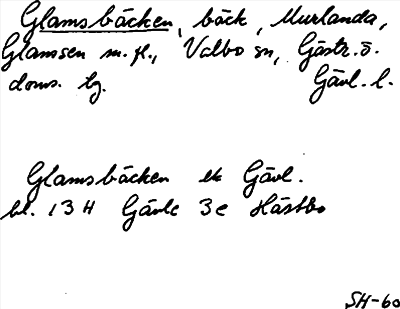 Glamsbäcken, bäck, Murlanda,
Glamsen m. fl., Valbo sn, Gästr. ö.
doms. hg. Gävl. l.
Glamsbäcken ek Gävl.
bl. 13H Gävle 3c Hästbo
SH-60